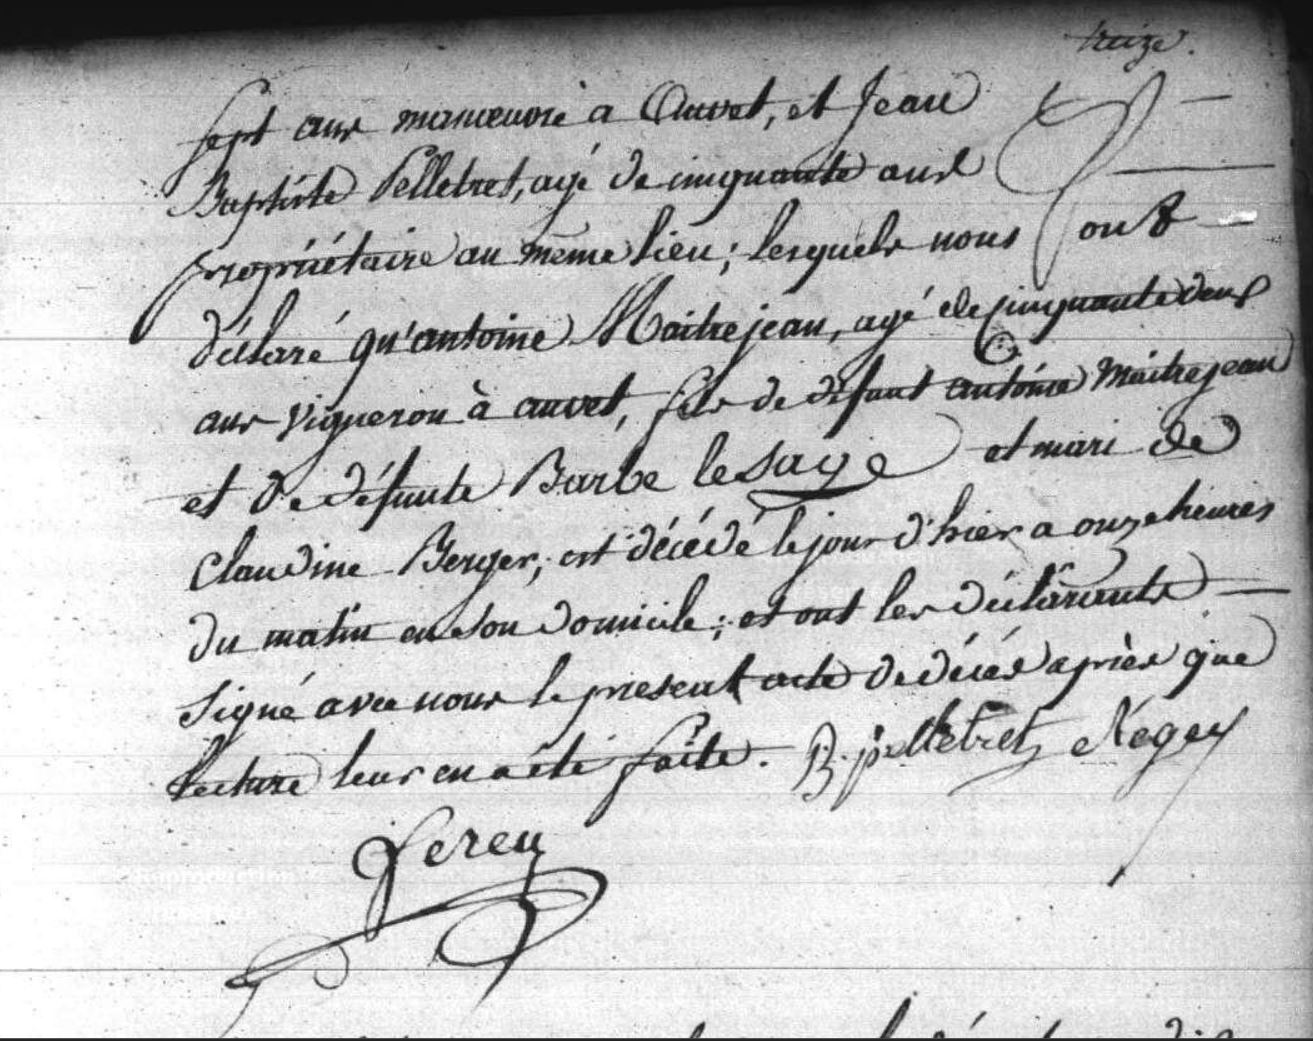 treize.
sept ans manoeuvre à Auvet, et Jean
Baptiste Pelletret, agé de cinquante ans
propriétaire au même lieu; lesquels nous ont
déclaré qu'antoine Maitrejean, agé de cinquante deux
ans vigneron à auvet, fils de défunt antoine Maitrejean
et de défunte Barbe lesage et mari de
Claudine Berger, est décédé le jour d'hier a onze heures
du matin en son domicile; et ont les déclarants
signé avec nous le présent acte de décés après que
lecture leur en a été faite. B. pelletret